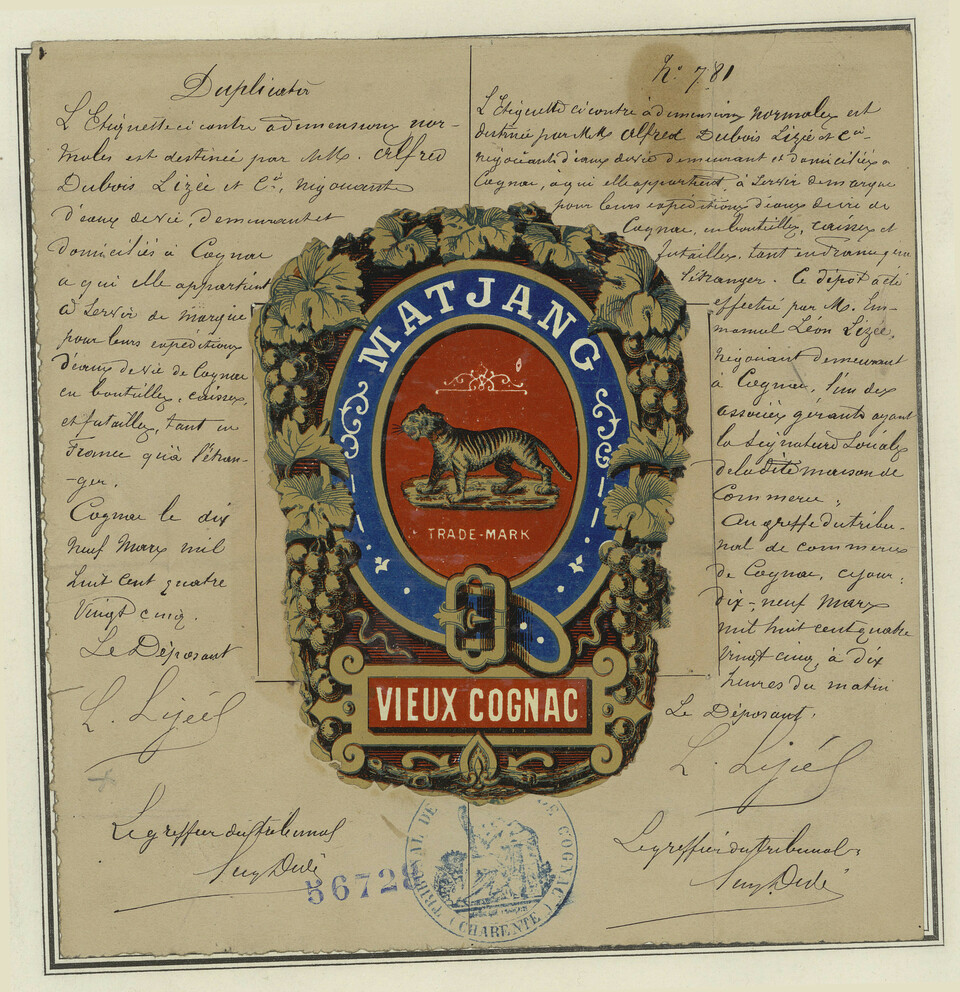 Duplicata
L'Etiquette ci contre à dimensions nor-
males est destinée par MM. Alfred
Dubois Lizée et Cie, négociants
d'eaux de vie, demeurant et
domiciliés à Cognac
à qui elle appartient
à servir de marque
pour leurs expéditions
d'eaux de vie de Cognac
en bouteilles, caisses,
et futailles, tant en
France qu'à l'étran-
-ger.
Cognac le dix
neuf Mars mil
huit cent quatre
Vingt cinq.
Le Déposant
L. Lizée
Le greffier du tribunal
No 781
L'Etiquette ci contre à dimensions normales est
destinée par MM. Alfred Dubois Lizée et Cie
négociants d'eaux de vie demeurant et domiciliés à
Cognac, à qui elle appartient à servir de marque
pour leurs expéditions d'eaux de vie de
Cognac, en bouteilles, caisses et
futailles, tant en France qu'à
l'étranger. Ce dépôt a été
effectué par M. Em-
manuel Léon Lizée,
négociant demeurant
à Cognac, l'un des
associés gérants ayant
la signature sociale
de la dite maison de
Commerce.
Au greffe du tribu-
nal de commerce
de Cognac, ce jour
dix-neuf Mars
mil huit cent quatre
vingt cinq, à dix
heures du matin
Le Déposant.
L. Lizée
Le greffier du tribunal
MATJANG
TRADE-MARK
VIEUX COGNAC
56728
TRIBUNAL DE COGNAC
(CHARENTE)